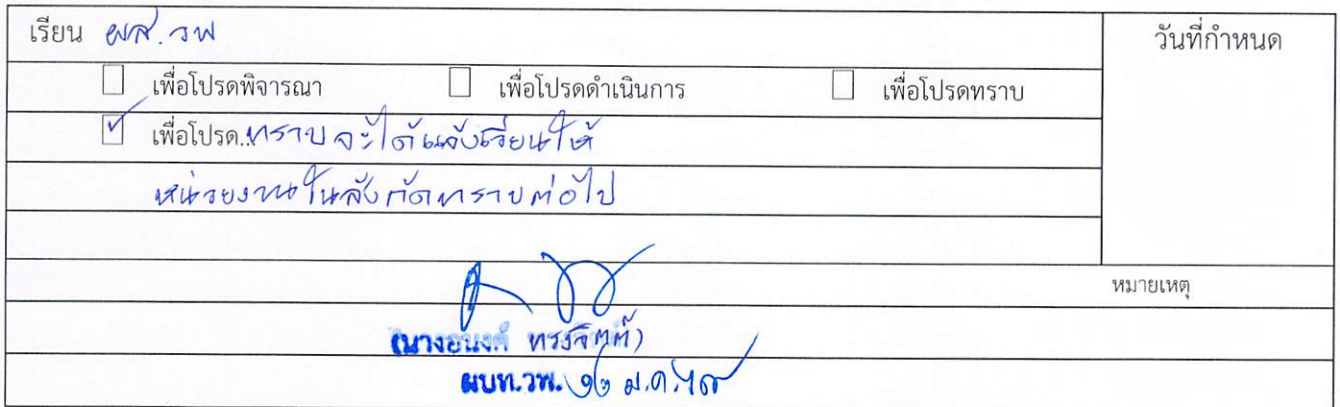 เรียน ผส.วพ
วันที่กำหนด
☐ เพื่อโปรดพิจารณา ☐ เพื่อโปรดดำเนินการ ☐ เพื่อโปรดทราบ
☑ เพื่อโปรด..ทราบ จะได้แจ้งเวียนให้
หน่วยงานในสังกัดทราบต่อไป
หมายเหตุ
(นางอนงค์ ทรงจิตต์)
ผบท.วพ. ๑๒ ม.ค.